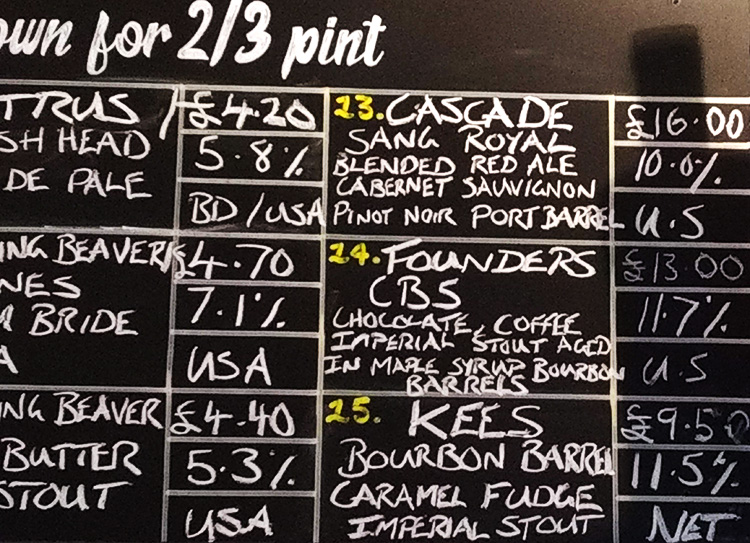 own for 2/3 pint
TRUS
SH HEAD
DE PALE
£4.20
5.8%
BD/USA
23. CASCADE
SANG ROYAL
BLENDED RED ALE
CABERNET SAUVIGNON
PINOT NOIR PORT BARREL
£16.00
10.0%
U.S
ING BEAVER
NES
BRIDE
A
£4.70
7.1%
USA
24. FOUNDERS
CBS
CHOCOLATE, COFFEE
IMPERIAL STOUT AGED
IN MAPLE SYRUP BOURBON
BARRELS
£13.00
11.7%
U.S
ING BEAVER
BUTTER
STOUT
£4.40
5.3%
USA
25. KEES
BOURBON BARREL
CARAMEL FUDGE
IMPERIAL STOUT
£9.50
11.5%
NET